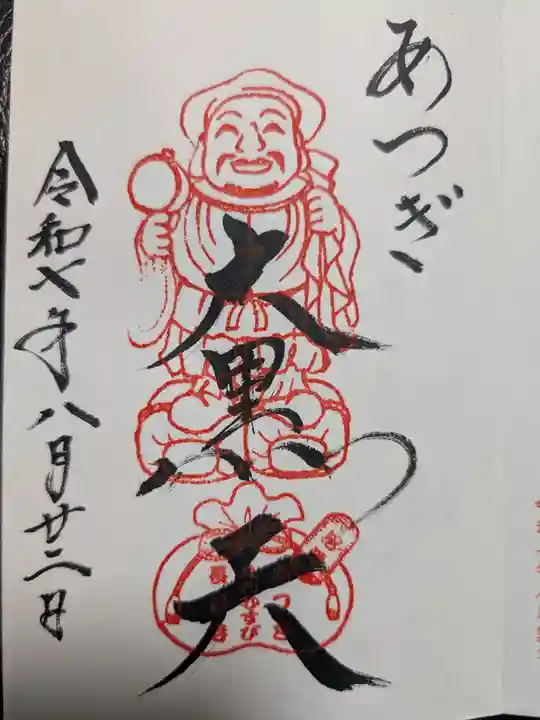 あつぎ
大黒天
令和七年八月廿二日